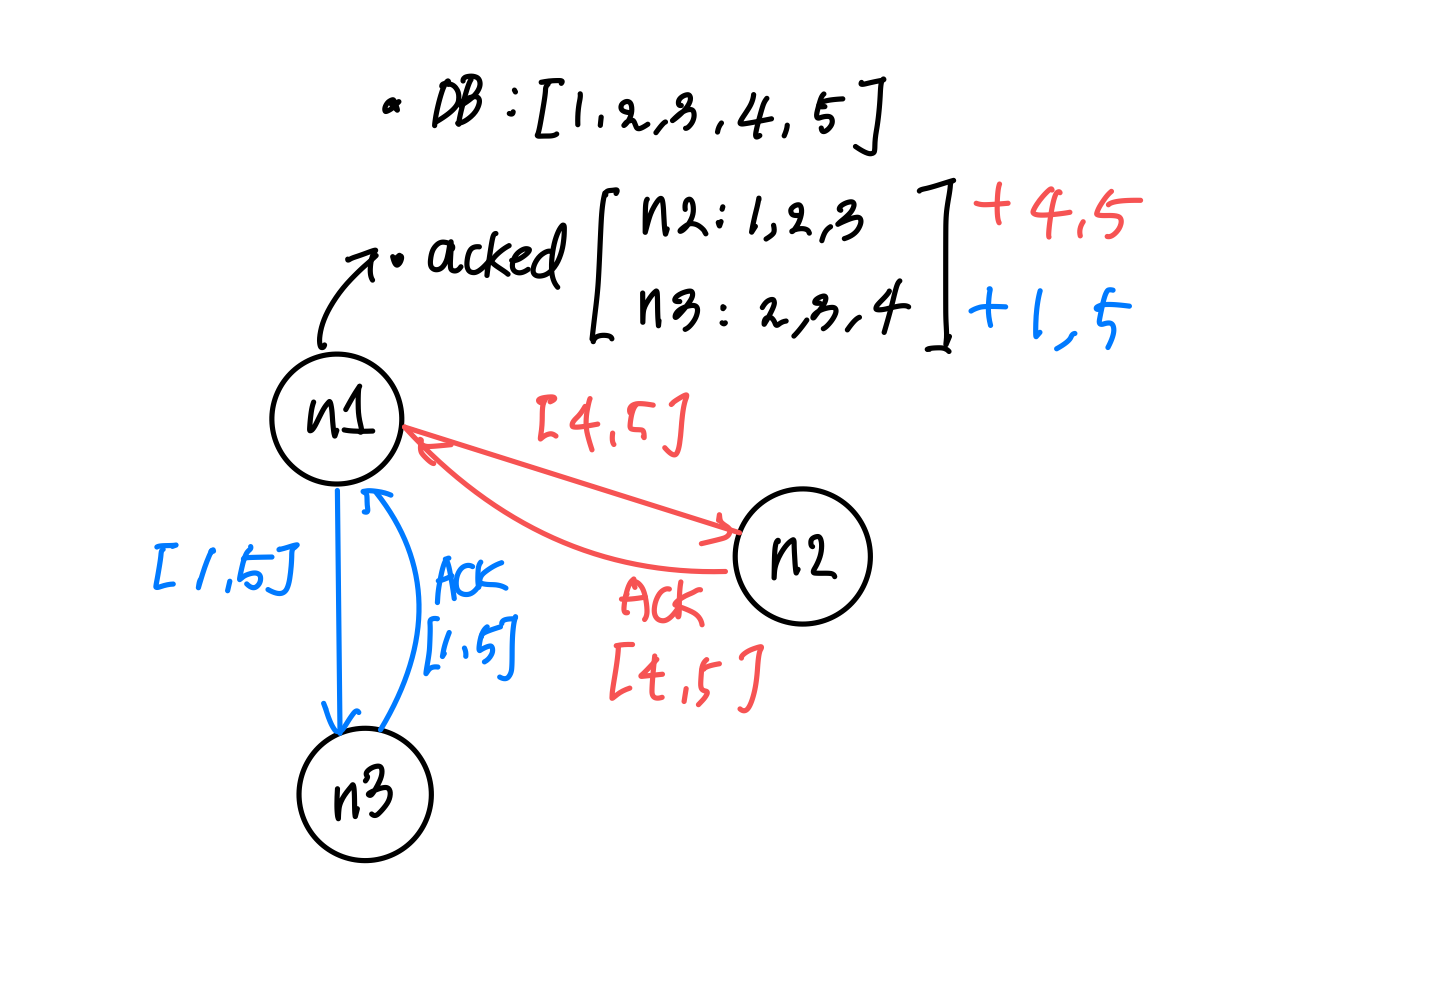 • DB : [1, 2, 3, 4, 5]
• acked [ n2: 1, 2, 3 ] + 4, 5
n3: 2, 3, 4 + 1, 5
n1
[4, 5]
n2
[1, 5]
ACK
[1, 5]
ACK
[4, 5]
n3